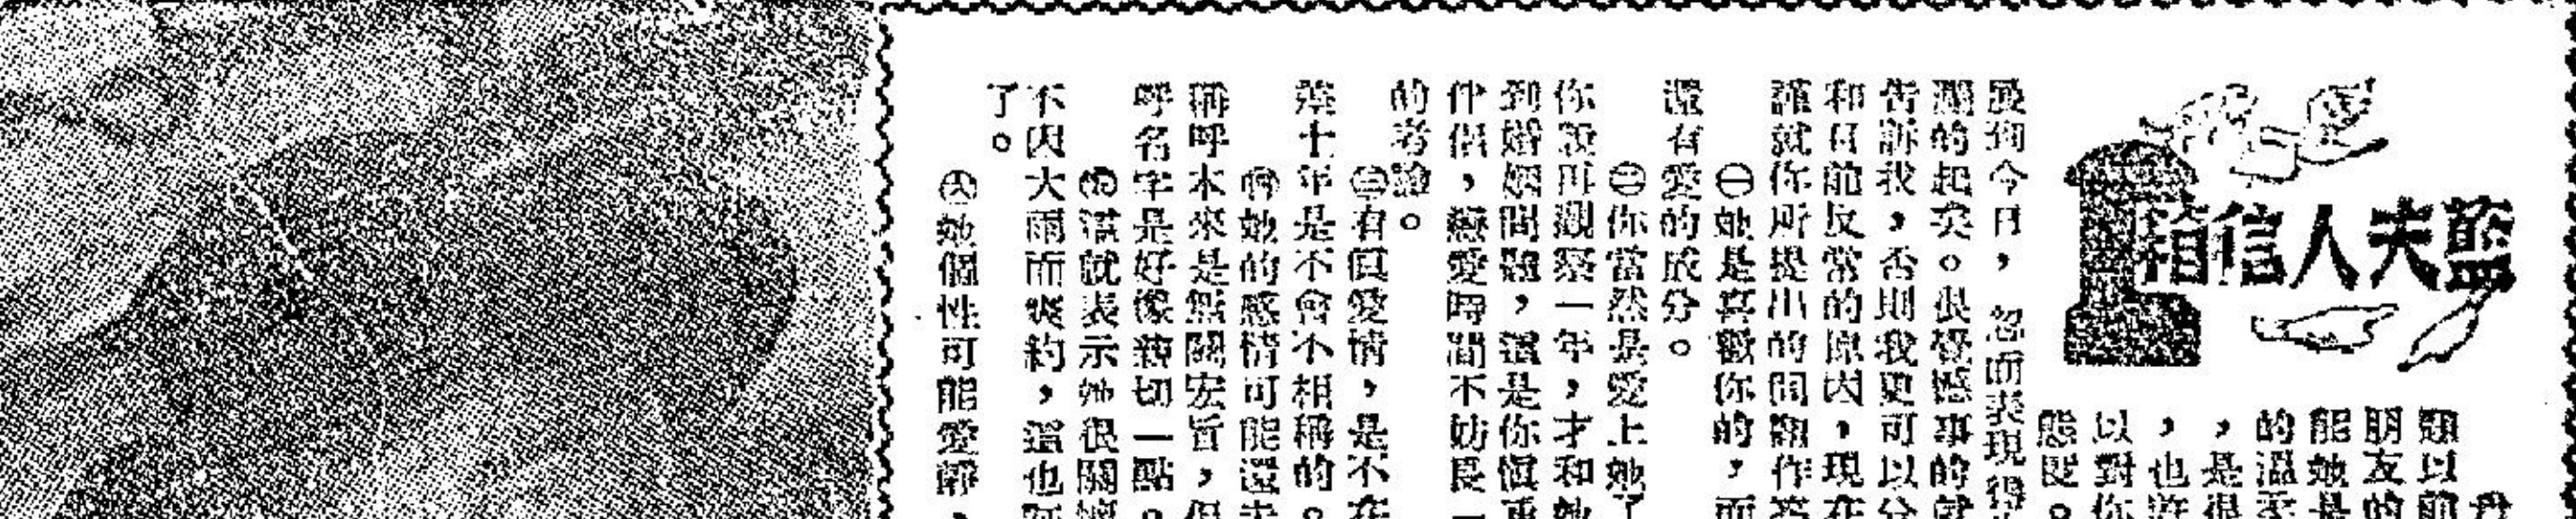 藍夫人信箱
題以前
朋友的
能她是
的溫柔
，是很
，也許
以對你
態度。
展到今日，忽而表現得
瀾的起奕。很覺憾事的就
告訴我，否則我更可以分
和日前反常的原因，現在
謹就你所提出的問題作答
㊀她是喜歡你的，而
還有愛的成分。
㊁你當然是愛上她了
你說再觀察一年，才和她
到婚姻問題，這是你慎重
伴侶，戀愛時間不妨長一
的考驗。
㊂有眞愛情，是不在
差十年是不會不相稱的。
㊃她的感情可能還未
稱呼本來是無關宏旨，但
呼名字是好像親切一點。
㊄這就表示她很關懷
不因大雨而爽約，這也
了。
㊅她個性可能愛靜，